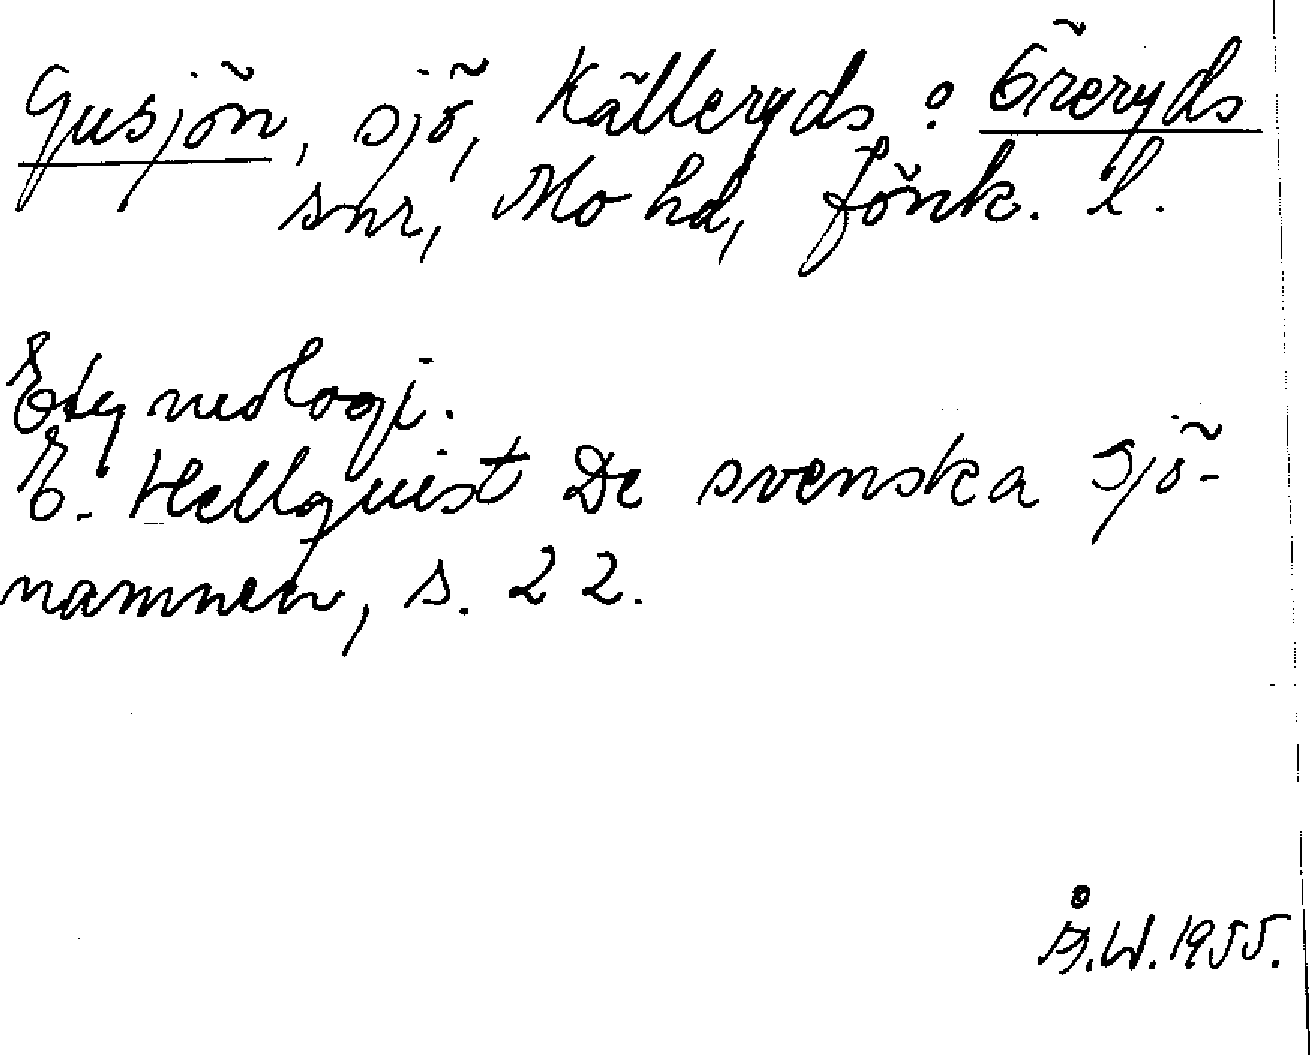 Gusjön, sjö, Källeryds o Öreryds
snr, Mo hd, Jönk. l.
Etymologi.
E. Hellquist De svenska sjö-
namnen, s. 22.
Å.W. 1955.